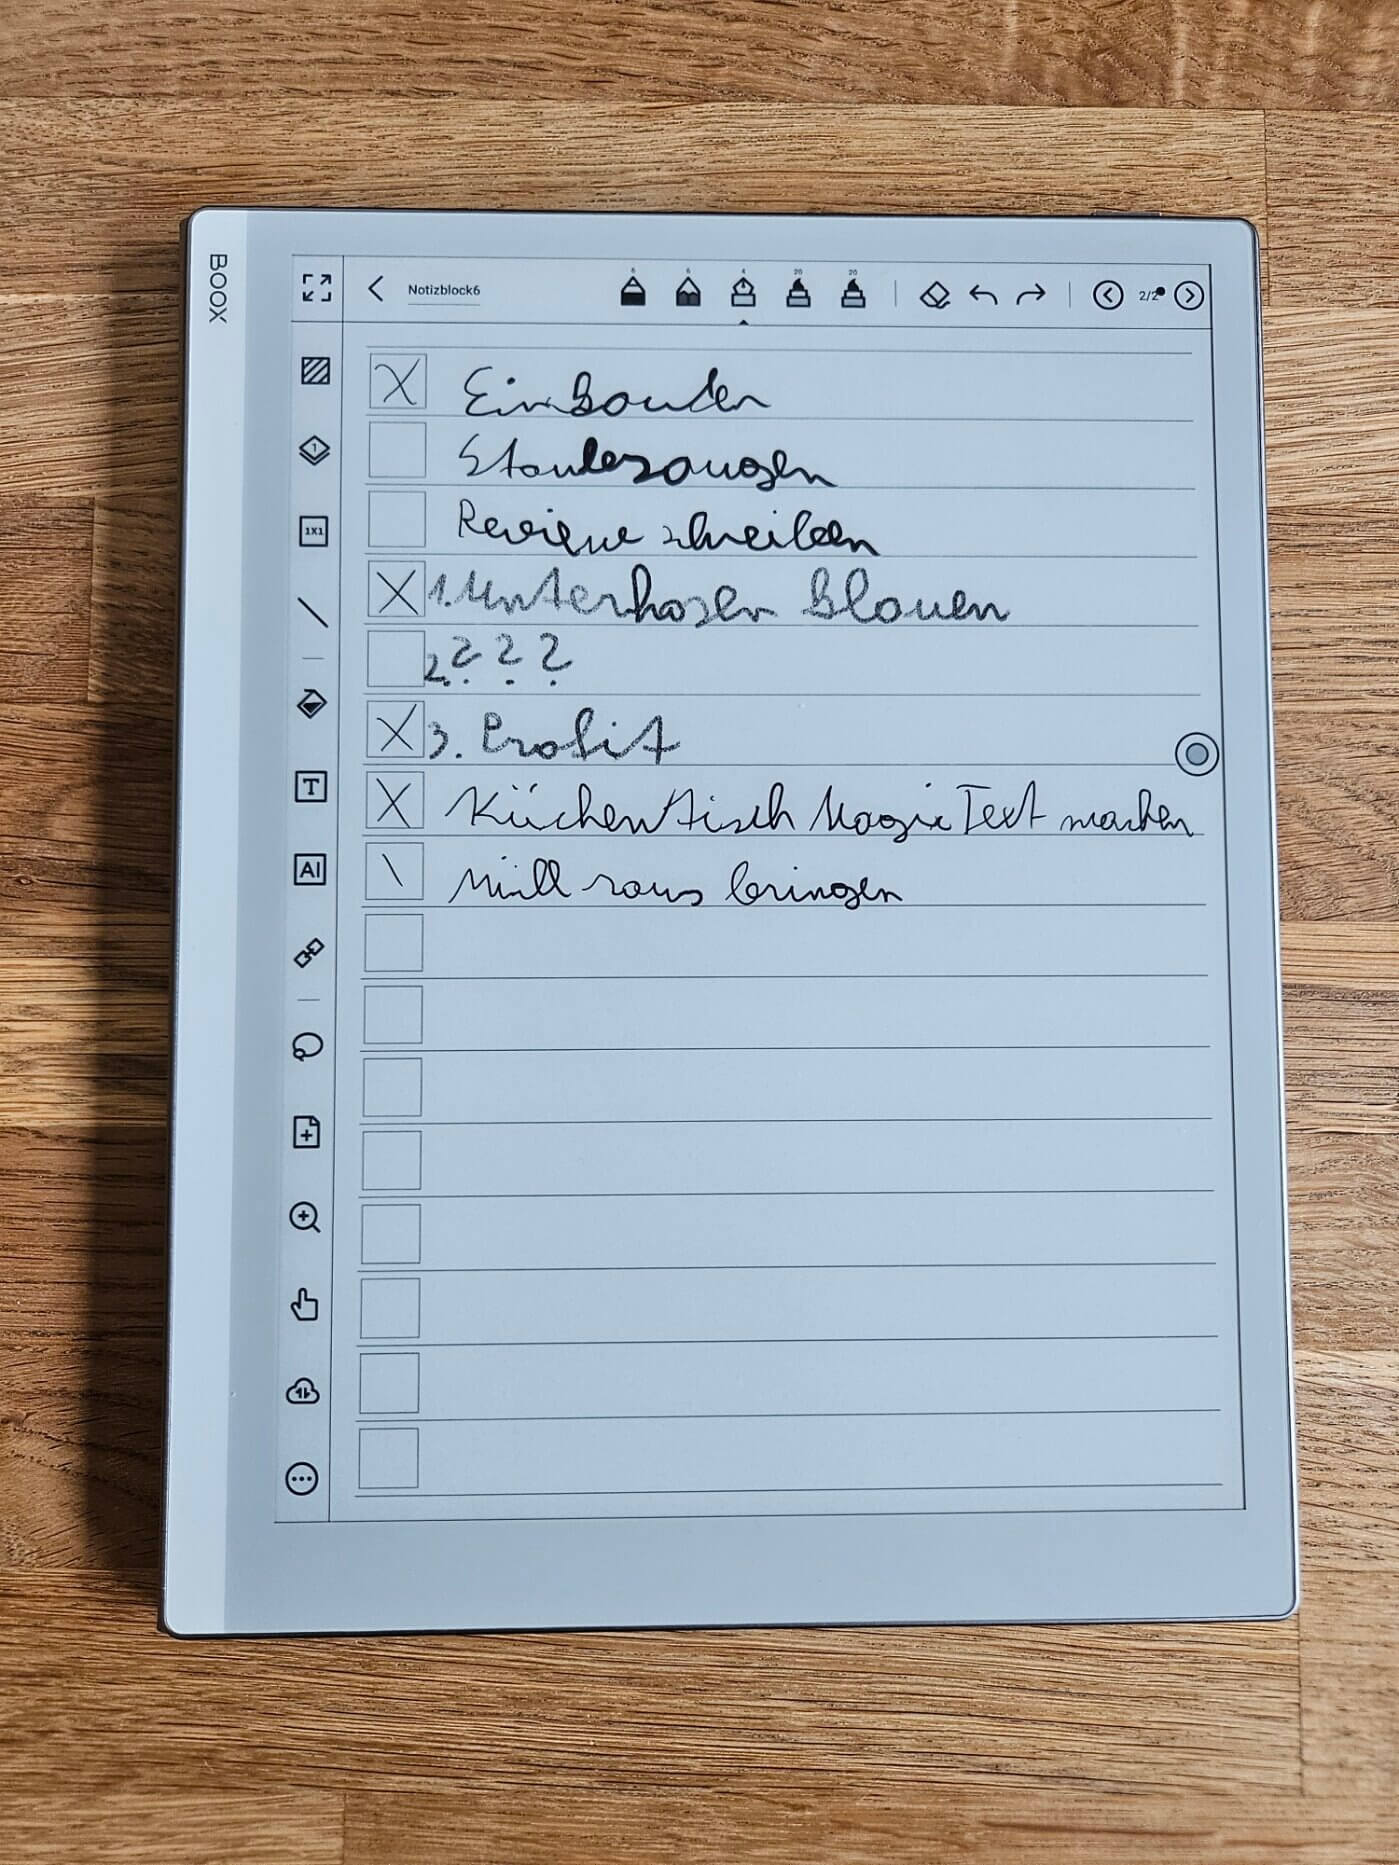 BOOX
Notizblock6
6 6 4 20 20
2/2
X Einkaufen
Staubsaugen
Review schreiben
X 1. Unterhosen klauen
2. ? ? ?
X 3. Profit
X Küchentisch Magic Text machen
\ Müll raus bringen
1
1X1
T
AI